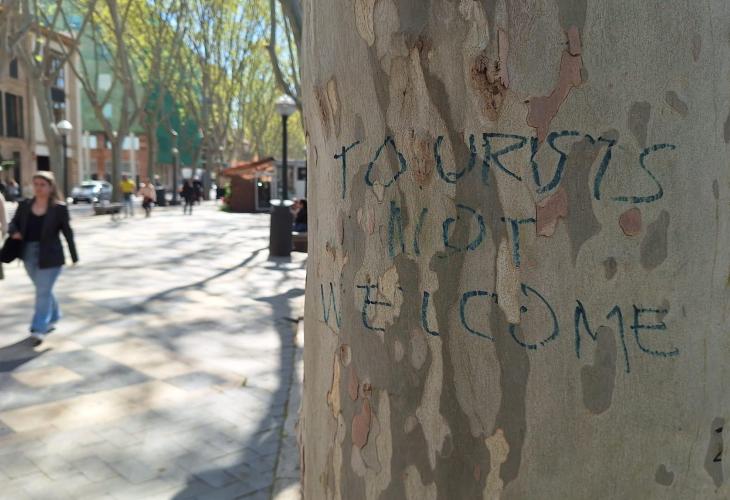 TOURISTS
NOT
WELCOME